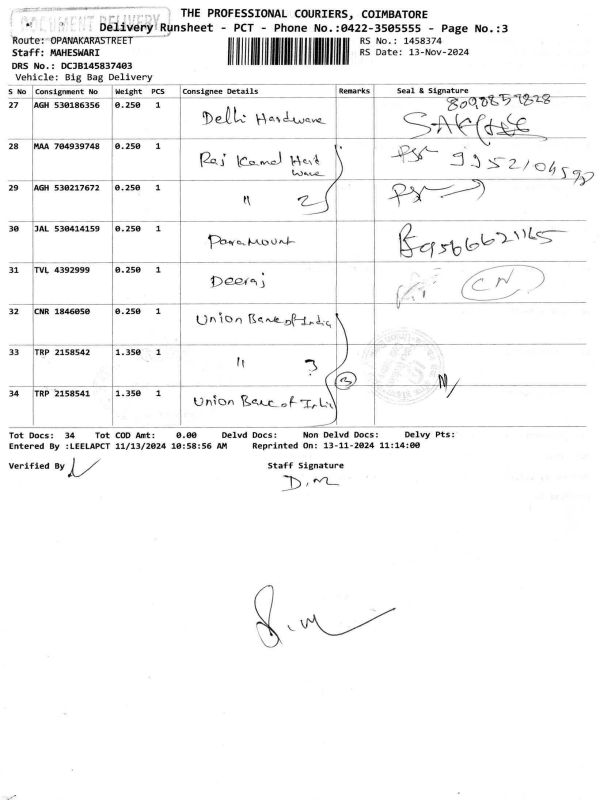 DOCUMENT DELIVERY
THE PROFESSIONAL COURIERS, COIMBATORE
Delivery Runsheet - PCT - Phone No.:0422-3505555 - Page No.:3
Route: OPANAKARASTREET RS No.: 1458374
Staff: MAHESWARI RS Date: 13-Nov-2024
DRS No.: DCJB145837403
Vehicle: Big Bag Delivery
S No Consignment No Weight PCS Consignee Details Remarks Seal & Signature
27 AGH 530186356 0.250 1 Delhi Hardware 8098859828
28 MAA 704939748 0.250 1 Raj Kamal Hard ware 9952104590
29 AGH 530217672 0.250 1 " 2
30 JAL 530414159 0.250 1 Paramount 9566621165
31 TVL 4392999 0.250 1 Deeraj CN
32 CNR 1846050 0.250 1 Union Bank of India
33 TRP 2158542 1.350 1 " 3 3
34 TRP 2158541 1.350 1 Union Bank of India
Tot Docs: 34 Tot COD Amt: 0.00 Delvd Docs: Non Delvd Docs: Delvy Pts:
Entered By :LEELAPCT 11/13/2024 10:58:56 AM Reprinted On: 13-11-2024 11:14:00
Verified By Staff Signature
D.M